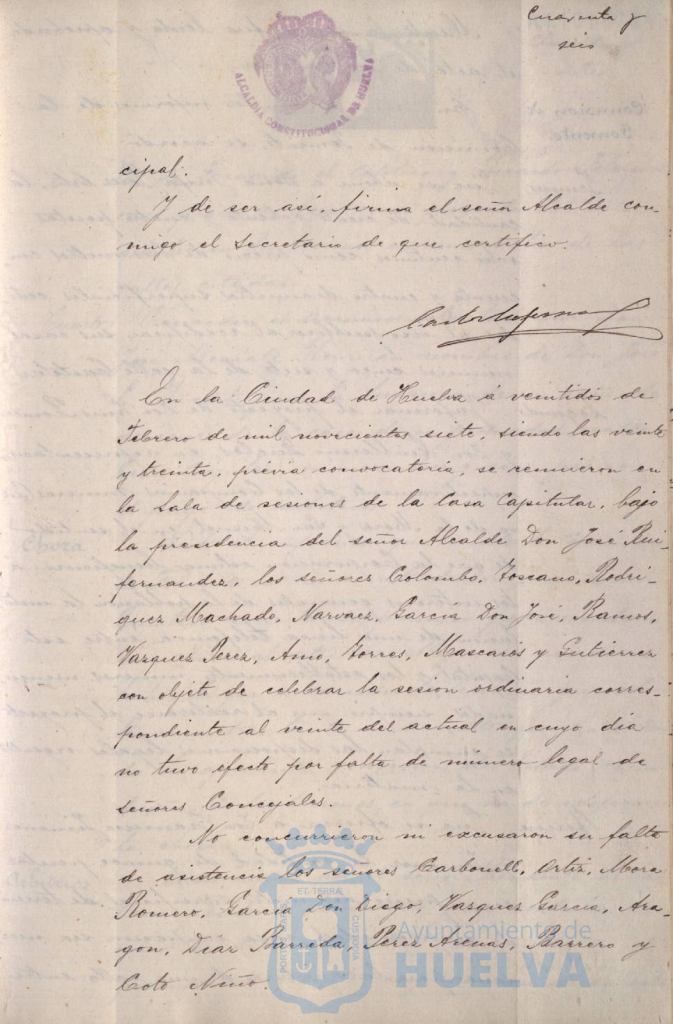 Cuarenta y
seis
ALCALDIA CONSTITUCIONAL DE HUELVA
cipal.
Y de ser así, firma el señor Alcalde con-
migo el Secretario de que certifico.
En la Ciudad de Huelva á veintidos de
Febrero de mil novecientos siete, siendo las veinte
y treinta, previa convocatoria, se reunieron en
la Sala de sesiones de la Casa Capitular, bajo
la presidencia del señor Alcalde Don José Rui-
fernandez, los señores Colombo, Toscano, Rodri-
guez Machado, Narvaez, García Don José, Ramos,
Vazquez Perez, Amo, Torres, Mascarós y Gutierrez
con objeto de celebrar la sesion ordinaria corres-
pondiente al veinte del actual en cuyo dia
no tuvo efecto por falta de número legal de
señores Concejales.
No concurrieron ni excusaron su falta
de asistencia los señores Carbonell, Ortiz, Mora
Romero, García Don Diego, Vazquez García, Ara-
gon, Diaz Barreda, Perez Arenas, Barrero y
Coto Niño.
Ayuntamiento de
HUELVA